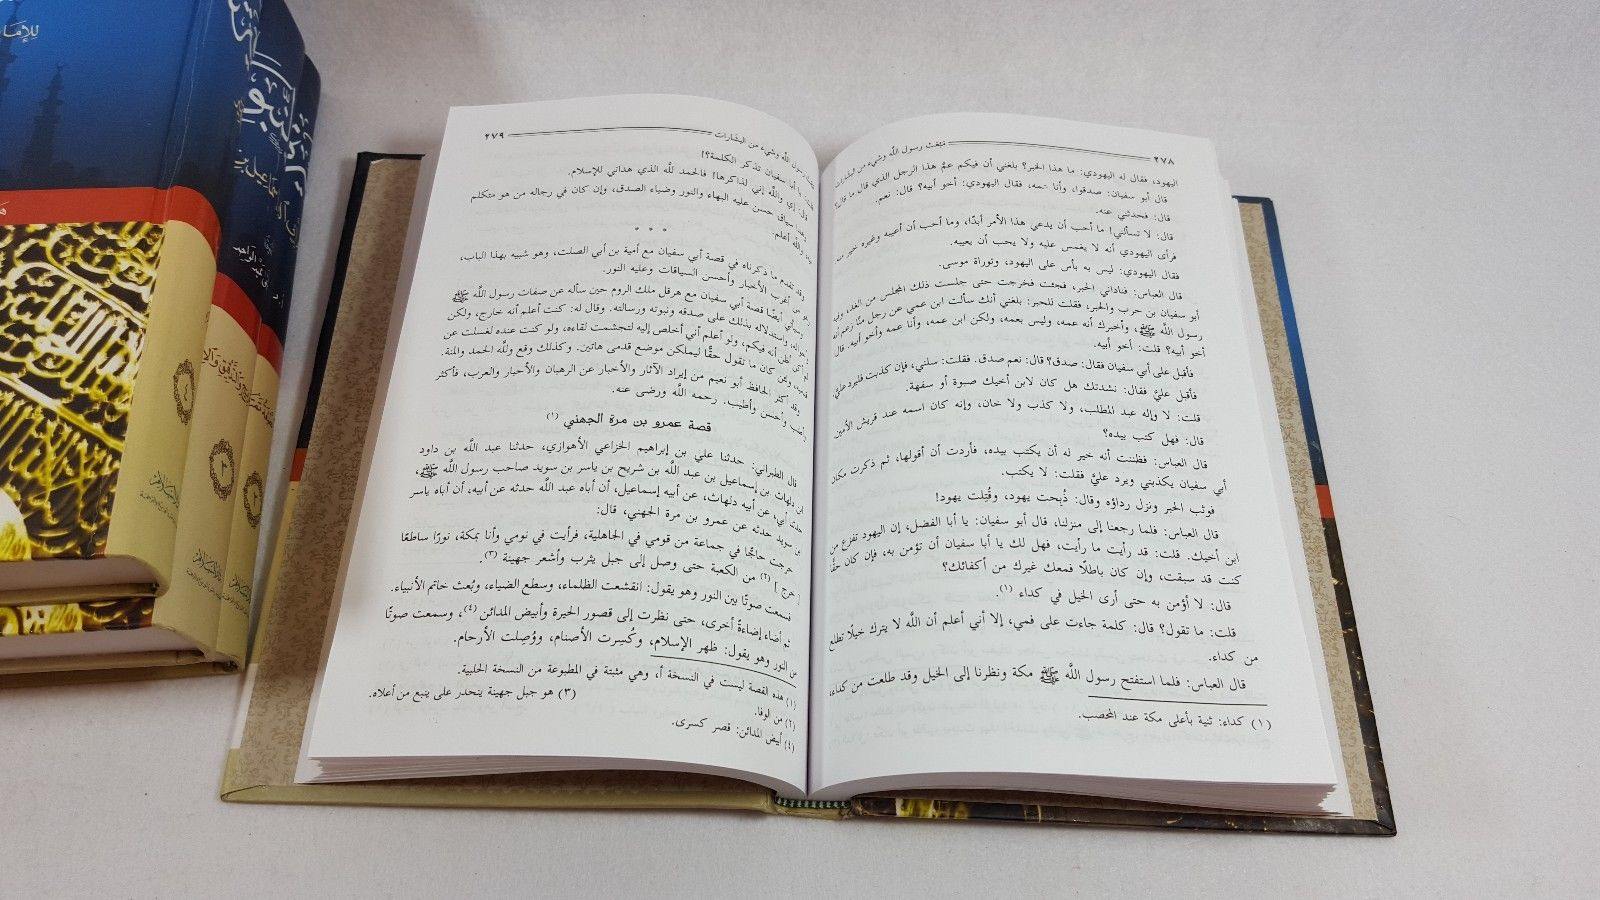 ٢٧٨
مَبْعَث رسول الله وشيء من البشارات
اليهود، فقال له اليهودي: ما هذا الخبر؟ بلغني أن فيكم عم هذا الرجل الذي قال ما قال؟
قال أبو سفيان: صدقوا، وأنا عمه، فقال اليهودي: أخو أبيه؟ قال: نعم.
قال: فحدثني عنه.
قال: لا تسألني! ما أحب أن يدعي هذا الأمر أبدًا، وما أحب أن أعيبه وغيره خير منه
فرأى اليهودي أنه لا يغمس عليه ولا يحب أن يعيبه.
فقال اليهودي: ليس به بأس على اليهود، وتوراة موسى.
قال العباس: فناداني الحبر، فجئت فخرجت حتى جلست ذلك المجلس من الغد، وفيه
أبو سفيان بن حرب والحبر، فقلت للحبر: بلغني أنك سألت ابن عمي عن رجل منا زعم أنه
رسول الله ﷺ، وأخبرك أنه عمه، وليس بعمه، ولكن ابن عمه، وأنا عمه وأخو أبيه. قال
أخو أبيه؟ قلت: أخو أبيه.
فأقبل على أبي سفيان فقال: صدق؟ قال: نعم صدق. فقلت: سلني، فإن كذبت فليرد عليَّ
فأقبل عليَّ فقال: نشدتك هل كان لابن أخيك صبوة أو سفهة.
قلت: لا وإله عبد المطلب، ولا كذب ولا خان، وإنه كان اسمه عند قريش الأمين
قال: فهل كتب بيده؟
قال العباس: فظننت أنه خير له أن يكتب بيده، فأردت أن أقولها، ثم ذكرت مكان
أبي سفيان يكذبني ويرد عليَّ فقلت: لا يكتب.
فوثب الحبر ونزل رداؤه وقال: ذُبحت يهود، وقُتِلت يهود!
قال العباس: فلما رجعنا إلى منزلنا، قال أبو سفيان: يا أبا الفضل، إن اليهود تفزع من
ابن أخيك. قلت: قد رأيت ما رأيت، فهل لك يا أبا سفيان أن تؤمن به، فإن كان حقًا
كنت قد سبقت، وإن كان باطلًا فمعك غيرك من أكفائك؟
قال: لا أؤمن به حتى أرى الخيل في كداء (١).
قلت: ما تقول؟ قال: كلمة جاءت على فمي، إلا أني أعلم أن الله لا يترك خيلًا تطلع
من كداء.
قال العباس: فلما استفتح رسول الله ﷺ مكة ونظرنا إلى الخيل وقد طلعت من كداء،
(١) كداء: ثنية بأعلى مكة عند المحصب.
رسول الله وشيء من البشارات
٢٧٩
قلت: يا أبا سفيان تذكر الكلمة؟!
قال: إي والله إني لذاكرها! فالحمد لله الذي هداني للإسلام.
وهذا سياق حسن عليه البهاء والنور وضياء الصدق، وإن كان في رجاله من هو متكلم
والله أعلم.
* * *
وقد تقدم ما ذكرناه في قصة أبي سفيان مع أمية بن أبي الصلت، وهو شبيه بهذا الباب،
من أغرب الأخبار وأحسن السياقات وعليه النور.
وسيأتي أيضًا قصة أبي سفيان مع هرقل ملك الروم حين سأله عن صفات رسول الله ﷺ
وأحواله، واستدلاله بذلك على صدقه ونبوته ورسالته. وقال له: كنت أعلم أنه خارج، ولكن
أظن أنه فيكم، ولو أعلم أني أخلص إليه لتجشمت لقاءه، ولو كنت عنده لغسلت عن
ولئن كان ما تقول حقًّا ليملكن موضع قدمي هاتين. وكذلك وقع ولله الحمد والمنة.
وقد أكثر الحافظ أبو نعيم من إيراد الآثار والأخبار عن الرهبان والأحبار والعرب، فأكثر
وأطنب وأحسن وأطيب. رحمه الله ورضي عنه.
قصة عمرو بن مرة الجهني (١)
قال الطبراني: حدثنا علي بن إبراهيم الخزاعي الأهوازي، حدثنا عبد الله بن داود
ابن دلهاث بن إسماعيل بن عبد الله بن شريح بن ياسر بن سويد صاحب رسول الله ﷺ،
حدثنا أبي، عن أبيه دلهاث، عن أبيه إسماعيل، أن أباه عبد الله حدثه عن أبيه، أن أباه ياسر
بن سويد حدثه عن عمرو بن مرة الجهني، قال:
خرجت حاجًّا في جماعة من قومي في الجاهلية، فرأيت في نومي وأنا بمكة، نورًا ساطعًا
[ خرج ] (٢) من الكعبة حتى وصل إلى جبل يثرب وأشعر جهينة (٣).
فسمعت صوتًا بين النور وهو يقول: انقشعت الظلماء، وسطع الضياء، وبُعث خاتم الأنبياء.
ثم أضاء إضاءةً أخرى، حتى نظرت إلى قصور الحيرة وأبيض المدائن (٤)، وسمعت صوتًا
من النور وهو يقول: ظهر الإسلام، وكُسِرت الأصنام، ووُصِلت الأرحام.
(١) هذه القصة ليست في النسخة أ، وهي مثبتة في المطبوعة من النسخة الحلبية.
(٢) من الوفا.
(٣) هو جبل جهينة ينحدر على ينبع من أعلاه.
(٤) أبيض المدائن: قصر كسرى.
للإمام